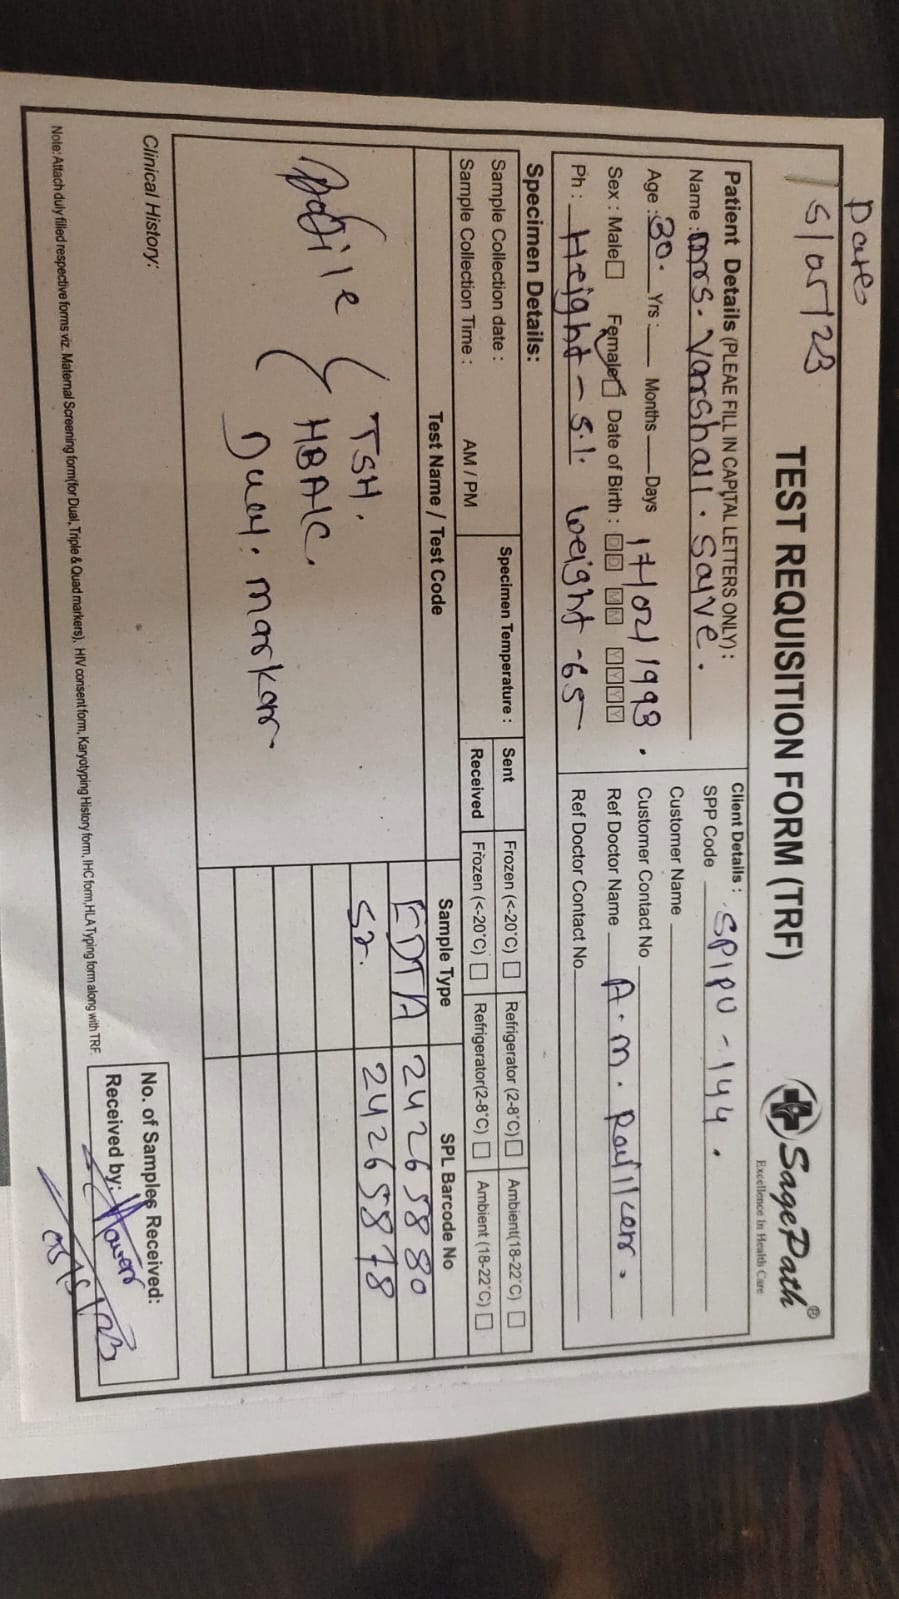 Date
TEST REQUISITION FORM (TRF)
SagePath®
Excellence In Health Care
Patient Details (PLEAE FILL IN CAPITAL LETTERS ONLY) :
Name : Mrs. Varshali . Sayve .
Age : 30. Yrs : Months Days 17/02/1993 .
Sex : Male Female Date of Birth : DD MM YYYY
Ph : Height - 5.1. weight - 65
Client Details :
SPP Code SPIPU - 144 .
Customer Name
Customer Contact No
Ref Doctor Name A. M.
Ref Doctor Contact No
Specimen Details:
Sample Collection date :
Sample Collection Time : AM / PM
Specimen Temperature :
Sent Frozen (<-20°C) Refrigerator (2-8°C) Ambient(18-22°C)
Received Frozen (<-20°C) Refrigerator(2-8°C) Ambient (18-22°C)
Test Name / Test Code Sample Type SPL Barcode No
EDTA 24265880
Sr. 24265878
TSH.
HBA1C.
Dual. marker
Clinical History:
No. of Samples Received:
Received by:
Note: Attach duly filled respective forms viz. Maternal Screening form(for Dual, Triple & Quad markers). HIV consent form, Karyotyping History form, IHC form,HLA Typing form along with TRF.